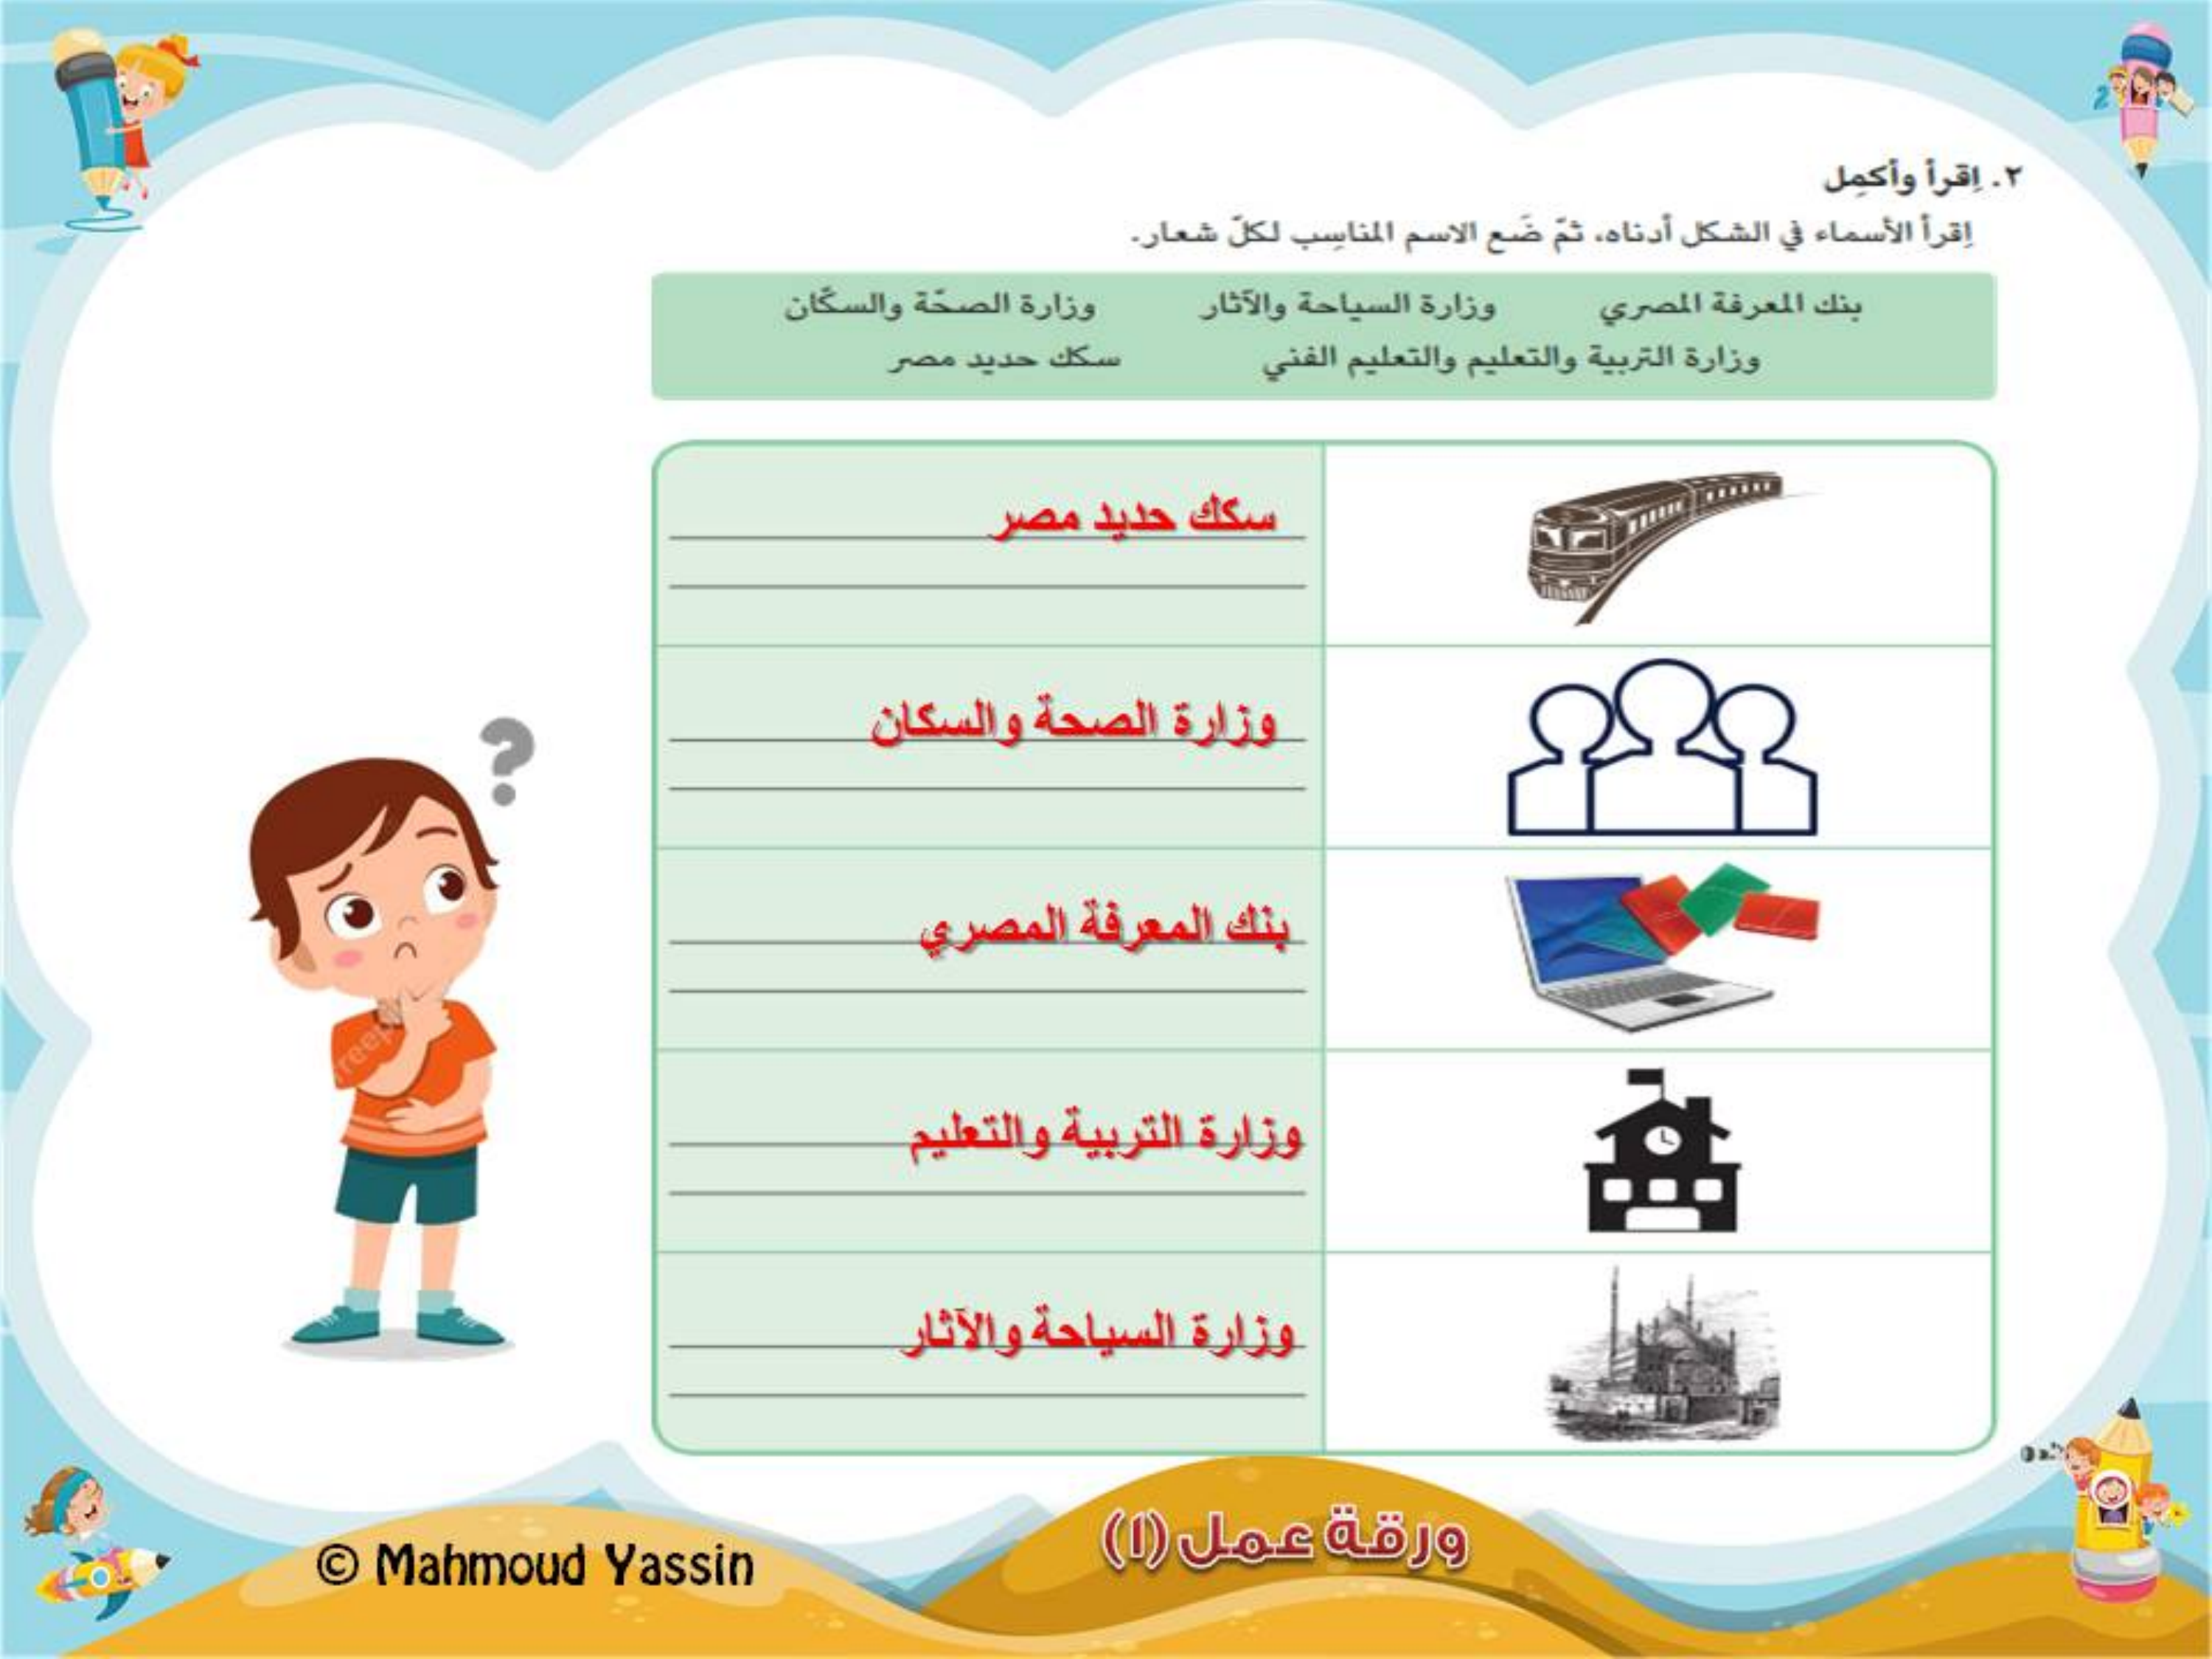 ٢. اِقرأ وأكمِل
اِقرأ الأسماء في الشكل أدناه، ثمّ ضَع الاسم المناسِب لكلّ شعار.
بنك المعرفة المصري وزارة السياحة والآثار وزارة الصحّة والسكّان
وزارة التربية والتعليم والتعليم الفني سكك حديد مصر
سكك حديد مصر
وزارة الصحة والسكان
بنك المعرفة المصري
وزارة التربية والتعليم
وزارة السياحة والآثار
ورقة عمل (١)
© Mahmoud Yassin